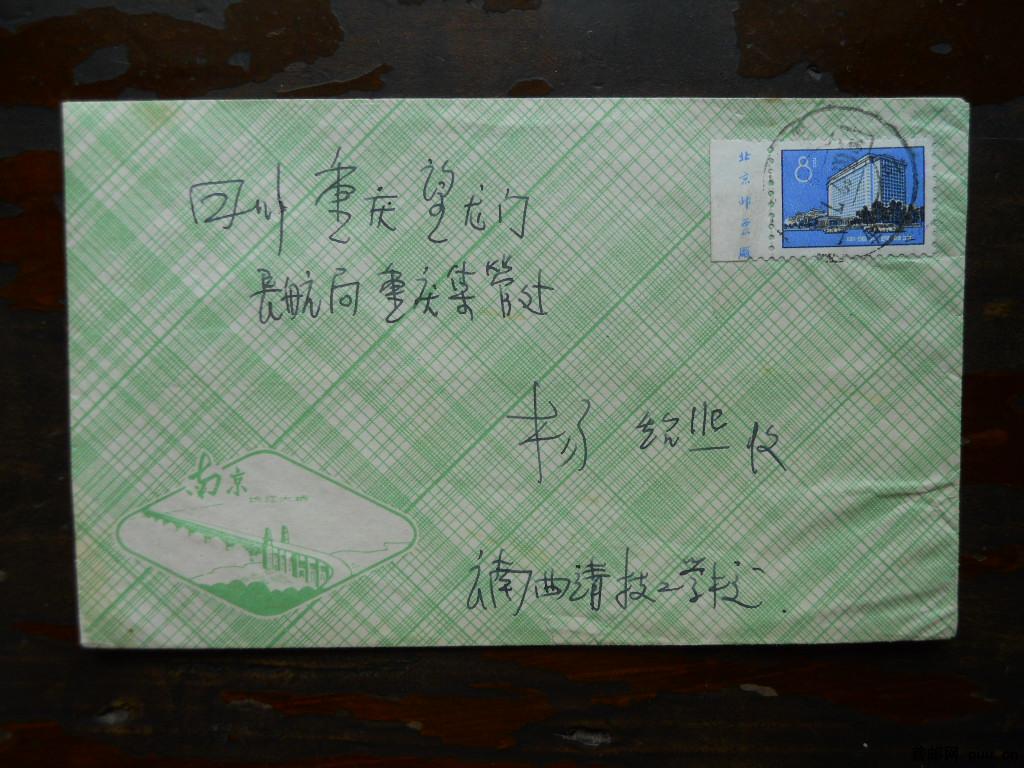 四川重庆望龙门
長航局重庆集管处
杨绍业收
云南曲靖技工学校.
南京
长江大桥
8分
北京邮票厂